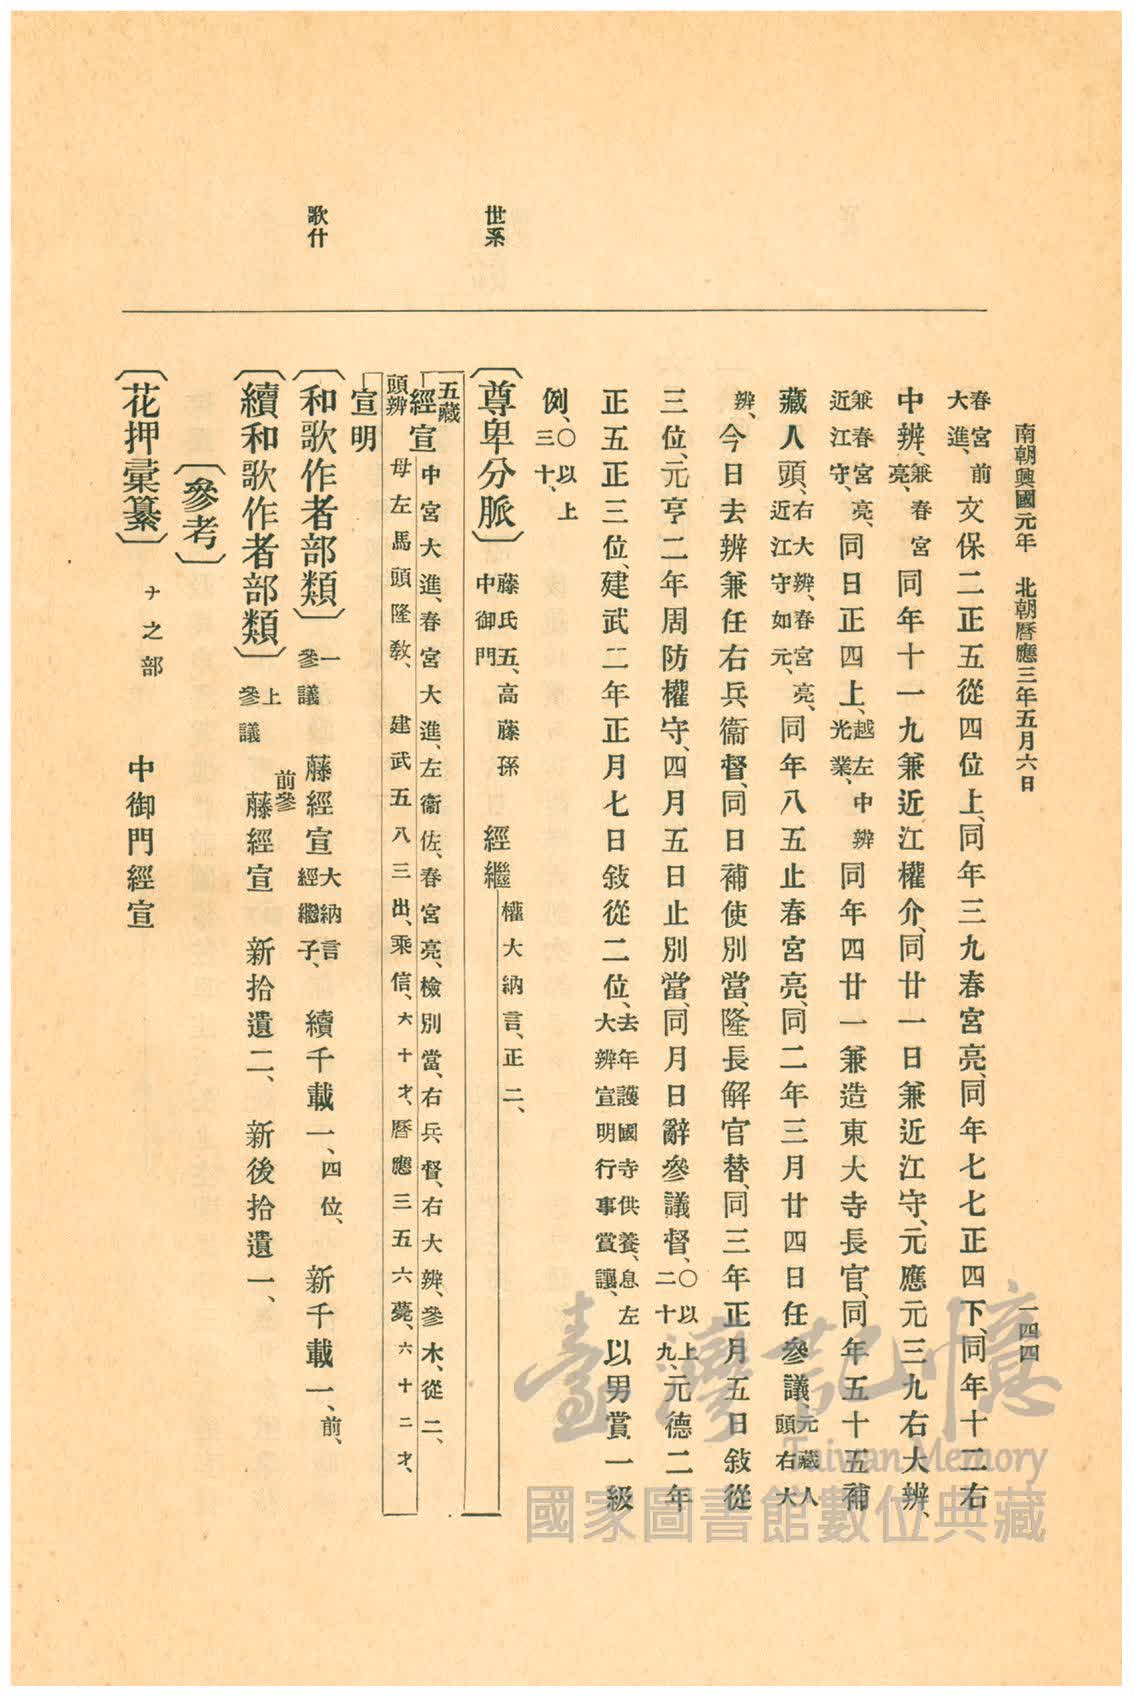 南朝興國元年 北朝曆應三年五月六日 一四四
春宮前大進、文保二正五從四位上、同年三九春宮亮、同年七七正四下、同年十二右
中辨、兼春宮亮、同年十一九兼近江權介、同廿一日兼近江守、元應元三九右大辨、
兼春宮亮、近江守、同日正四上、越左中辨光業、同年四廿一兼造東大寺長官、同年五十五補
藏人頭、右大辨、春宮亮、近江守如元、同年八五止春宮亮、同二年三月廿四日任參議、元藏人頭右大
辨、今日去辨兼任右兵衞督、同日補使別當、隆長解官替、同三年正月五日敍從
三位、元亨二年周防權守、四月五日止別當、同月日辭參議督、〇以上二十九、元德二年
正五正三位、建武二年正月七日敍從二位、去年護國寺供養、息左大辨宣明行事賞讓、以男賞一級
例、〇以上三十、
世系
〔尊卑分脈〕藤氏五、高藤孫中御門
經繼 權大納言、正二、
五藏頭辨
經宣 中宮大進、春宮大進、左衞佐、春宮亮、檢別當、右兵、督、右大辨、參木、從二、
母左馬頭隆敎、 建武五八三出、乘信、六十才、曆應三五六薨、六十二才、
宣明
歌什
〔和歌作者部類〕一參議 藤經宣 大納言經繼子、 續千載一、四位、 新千載一、前、
〔續和歌作者部類〕上參議 前參藤經宣 新拾遺二、 新後拾遺一、
〔參考〕
〔花押彙纂〕ナ之部 中御門經宣
臺灣記憶
Taiwan Memory
國家圖書館數位典藏